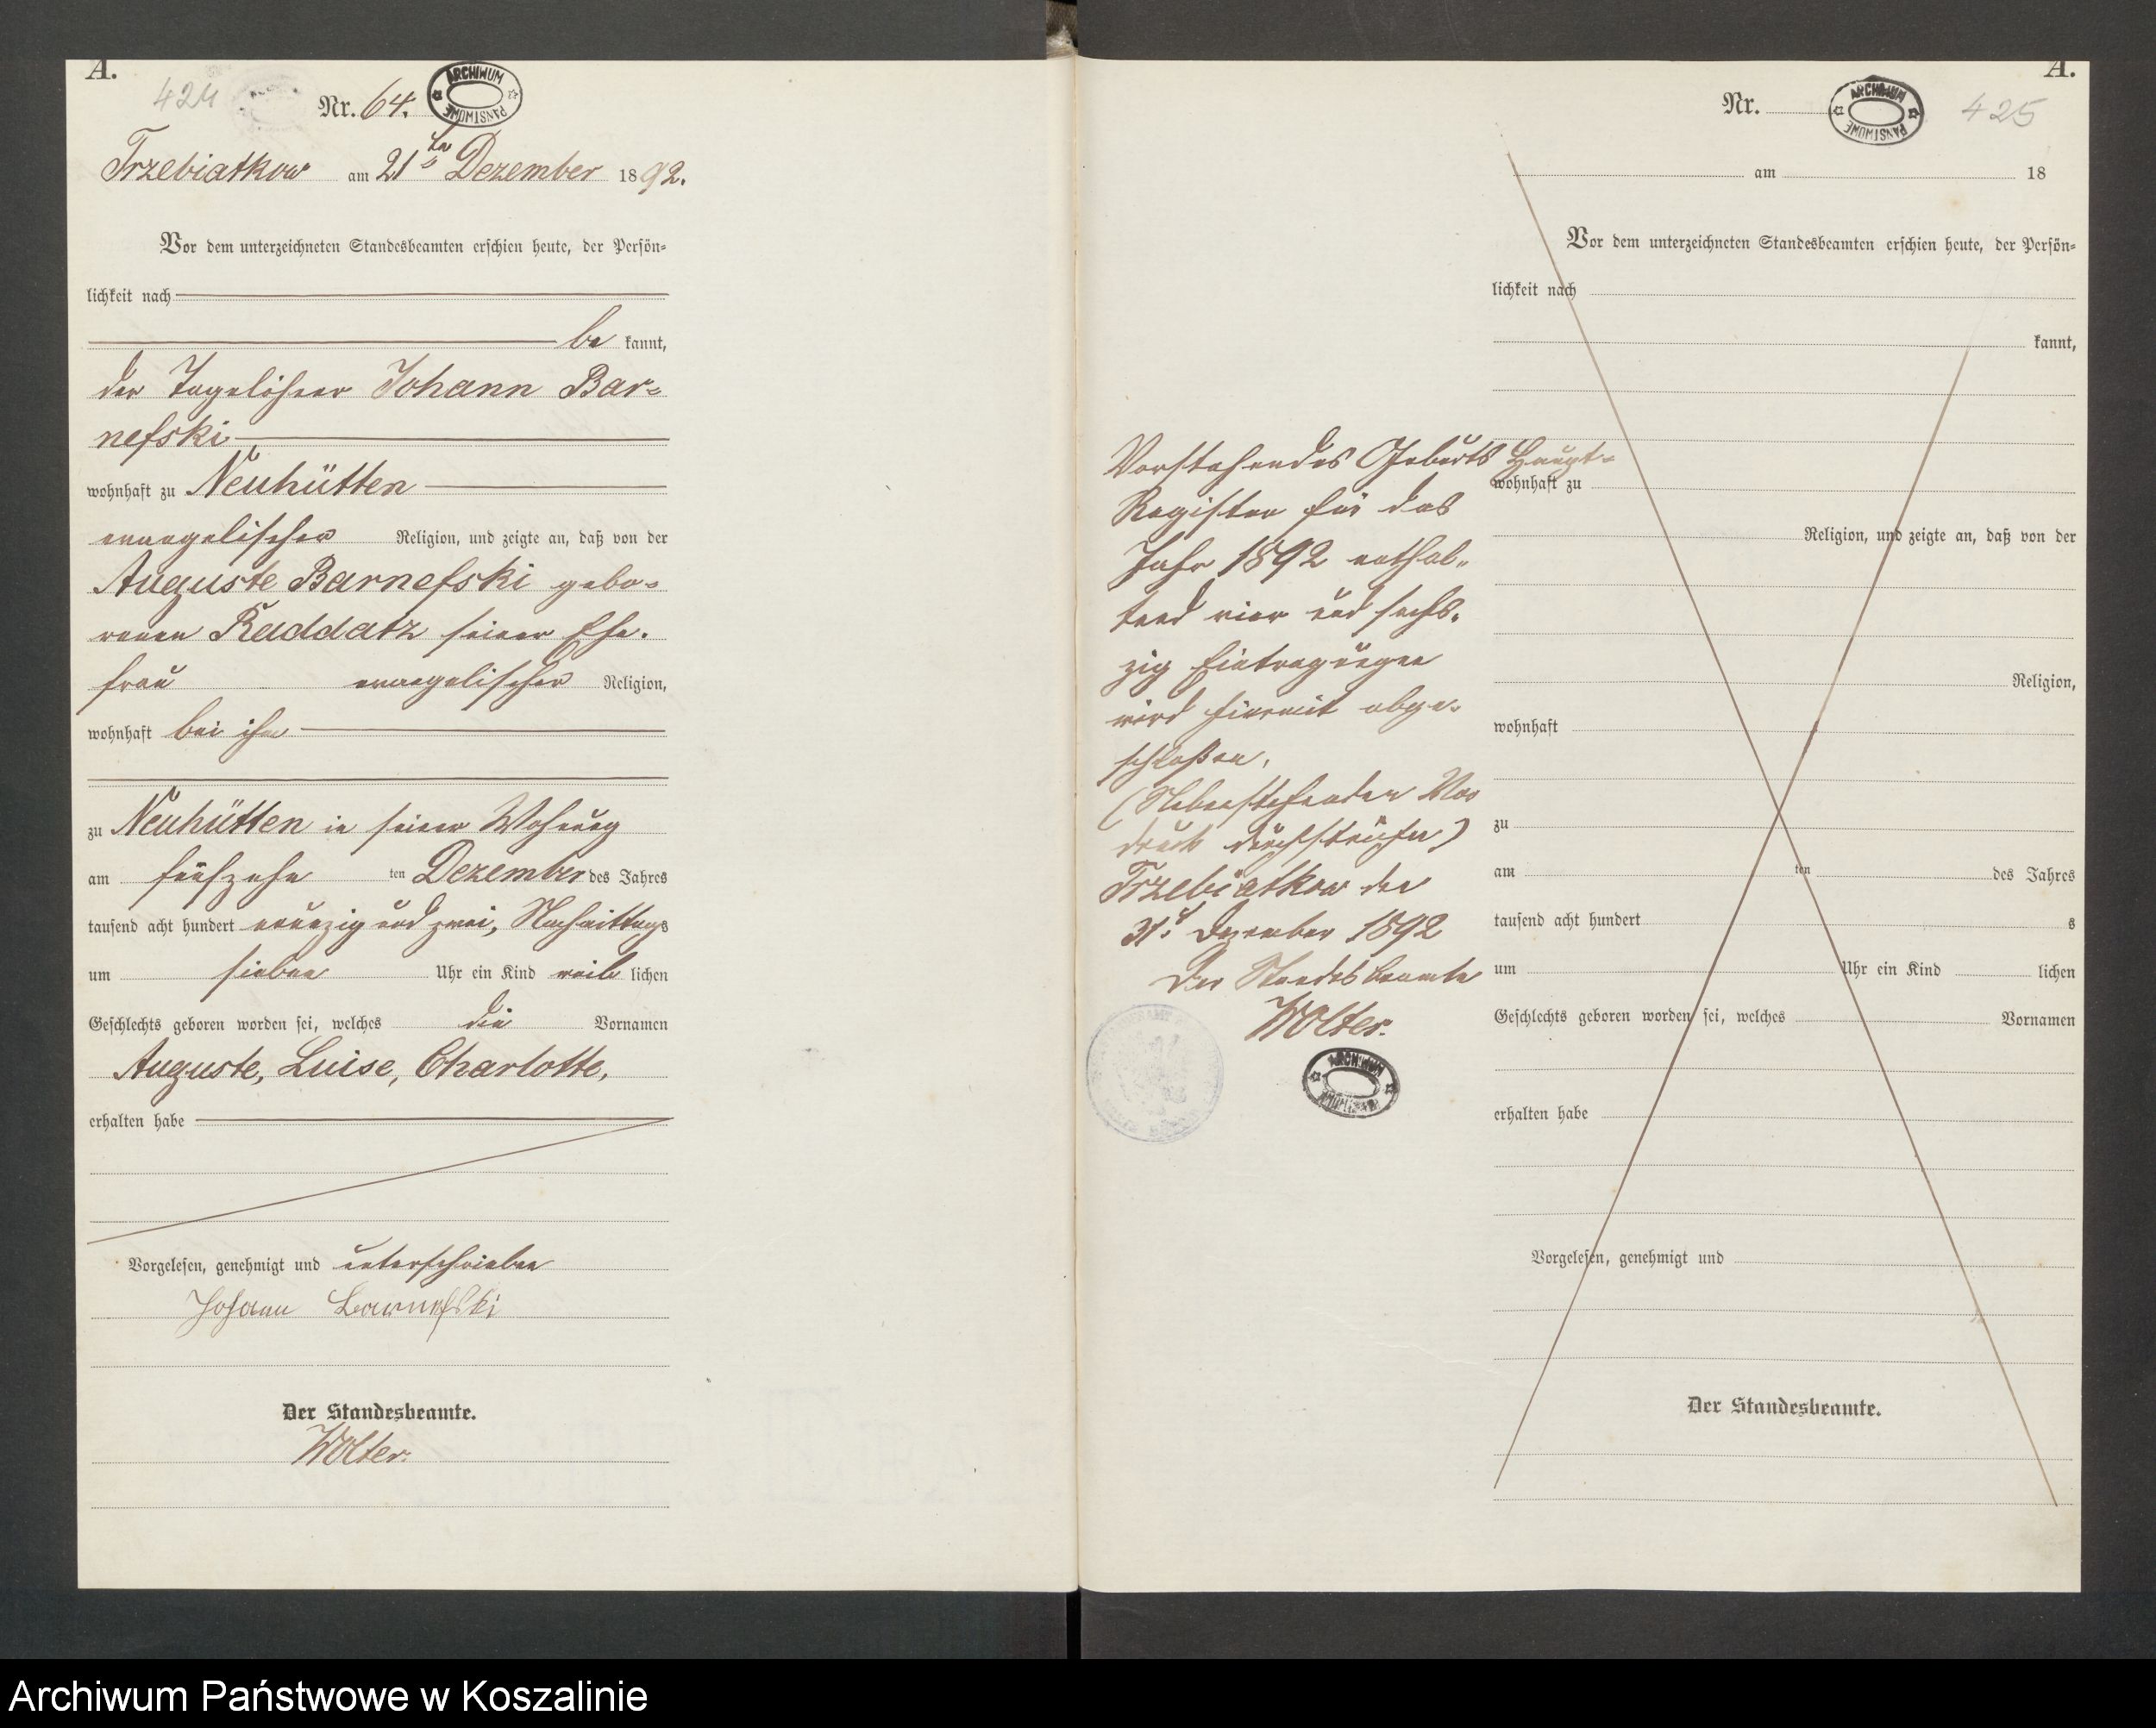 A.
424
Nr. 64.
ARCHIWUM PAŃSTWOWE
Trzebiatkow am 21ten Dezember 1892.
Vor dem unterzeichneten Standesbeamten erschien heute, der Persön=
lichkeit nach
be kannt,
der Tagelöhner Johann Bar=
nefski
wohnhaft zu Neuhütten
evangelischer Religion, und zeigte an, daß von der
Auguste Barnefski gebo=
renen Raddatz seiner Ehe=
frau evangelischer Religion,
wohnhaft bei ihm
zu Neuhütten in seiner Wohnung
am fünfzehn ten Dezember des Jahres
tausend acht hundert neunzig und zwei, Nachmittags
um sieben Uhr ein Kind weib lichen
Geschlechts geboren worden sei, welches die Vornamen
Auguste, Luise, Charlotte,
erhalten habe
Vorgelesen, genehmigt und unterschrieben
Johann Barnefski
Der Standesbeamte.
Wolter.
A.
Nr.
ARCHIWUM PAŃSTWOWE
425
am 18
Vor dem unterzeichneten Standesbeamten erschien heute, der Persön=
lichkeit nach
kannt,
wohnhaft zu
Religion, und zeigte an, daß von der
Religion,
wohnhaft
zu
am ten des Jahres
tausend acht hundert s
um Uhr ein Kind lichen
Geschlechts geboren worden sei, welches Vornamen
erhalten habe
Vorgelesen, genehmigt und
Der Standesbeamte.
Vorstehendes Geburts Haupt=
Register für das
Jahr 1892 enthal=
tend vier und sechs=
zig Eintragungen
wird hiermit abge=
schloßen,
(Nebenstehenden Vor
druck durchstrichen)
Trzebiatkow den
31t. Dezember 1892
Der Standesbeamte
Wolter.
ARCHIWUM
Archiwum Państwowe w Koszalinie